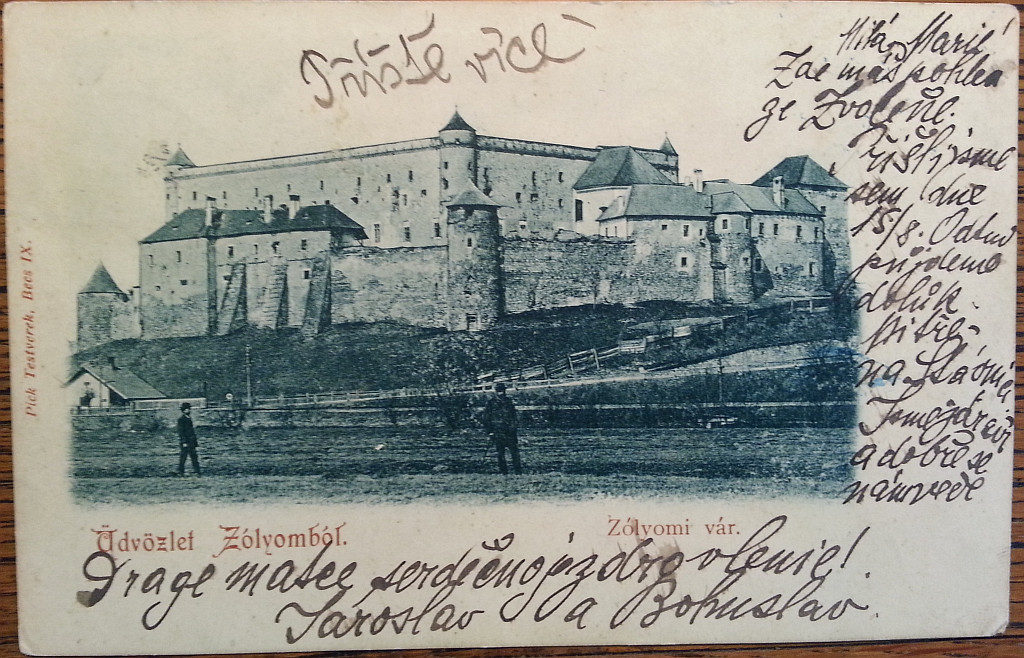 Příště více
Milá Marie!
Zde máš pohled
ze Zvolena.
Přišli jsme
sem dne
15/8. Odtud
půjdeme
dolů k
na Štávnici.
Jsme zdrávi
a dobře se
nám vede
Piek Testverek, Bécs IX.
Üdvözlet Zólyomból.
Zólyomi vár.
Drage matce serdečno
Jaroslav a Bohuslav.